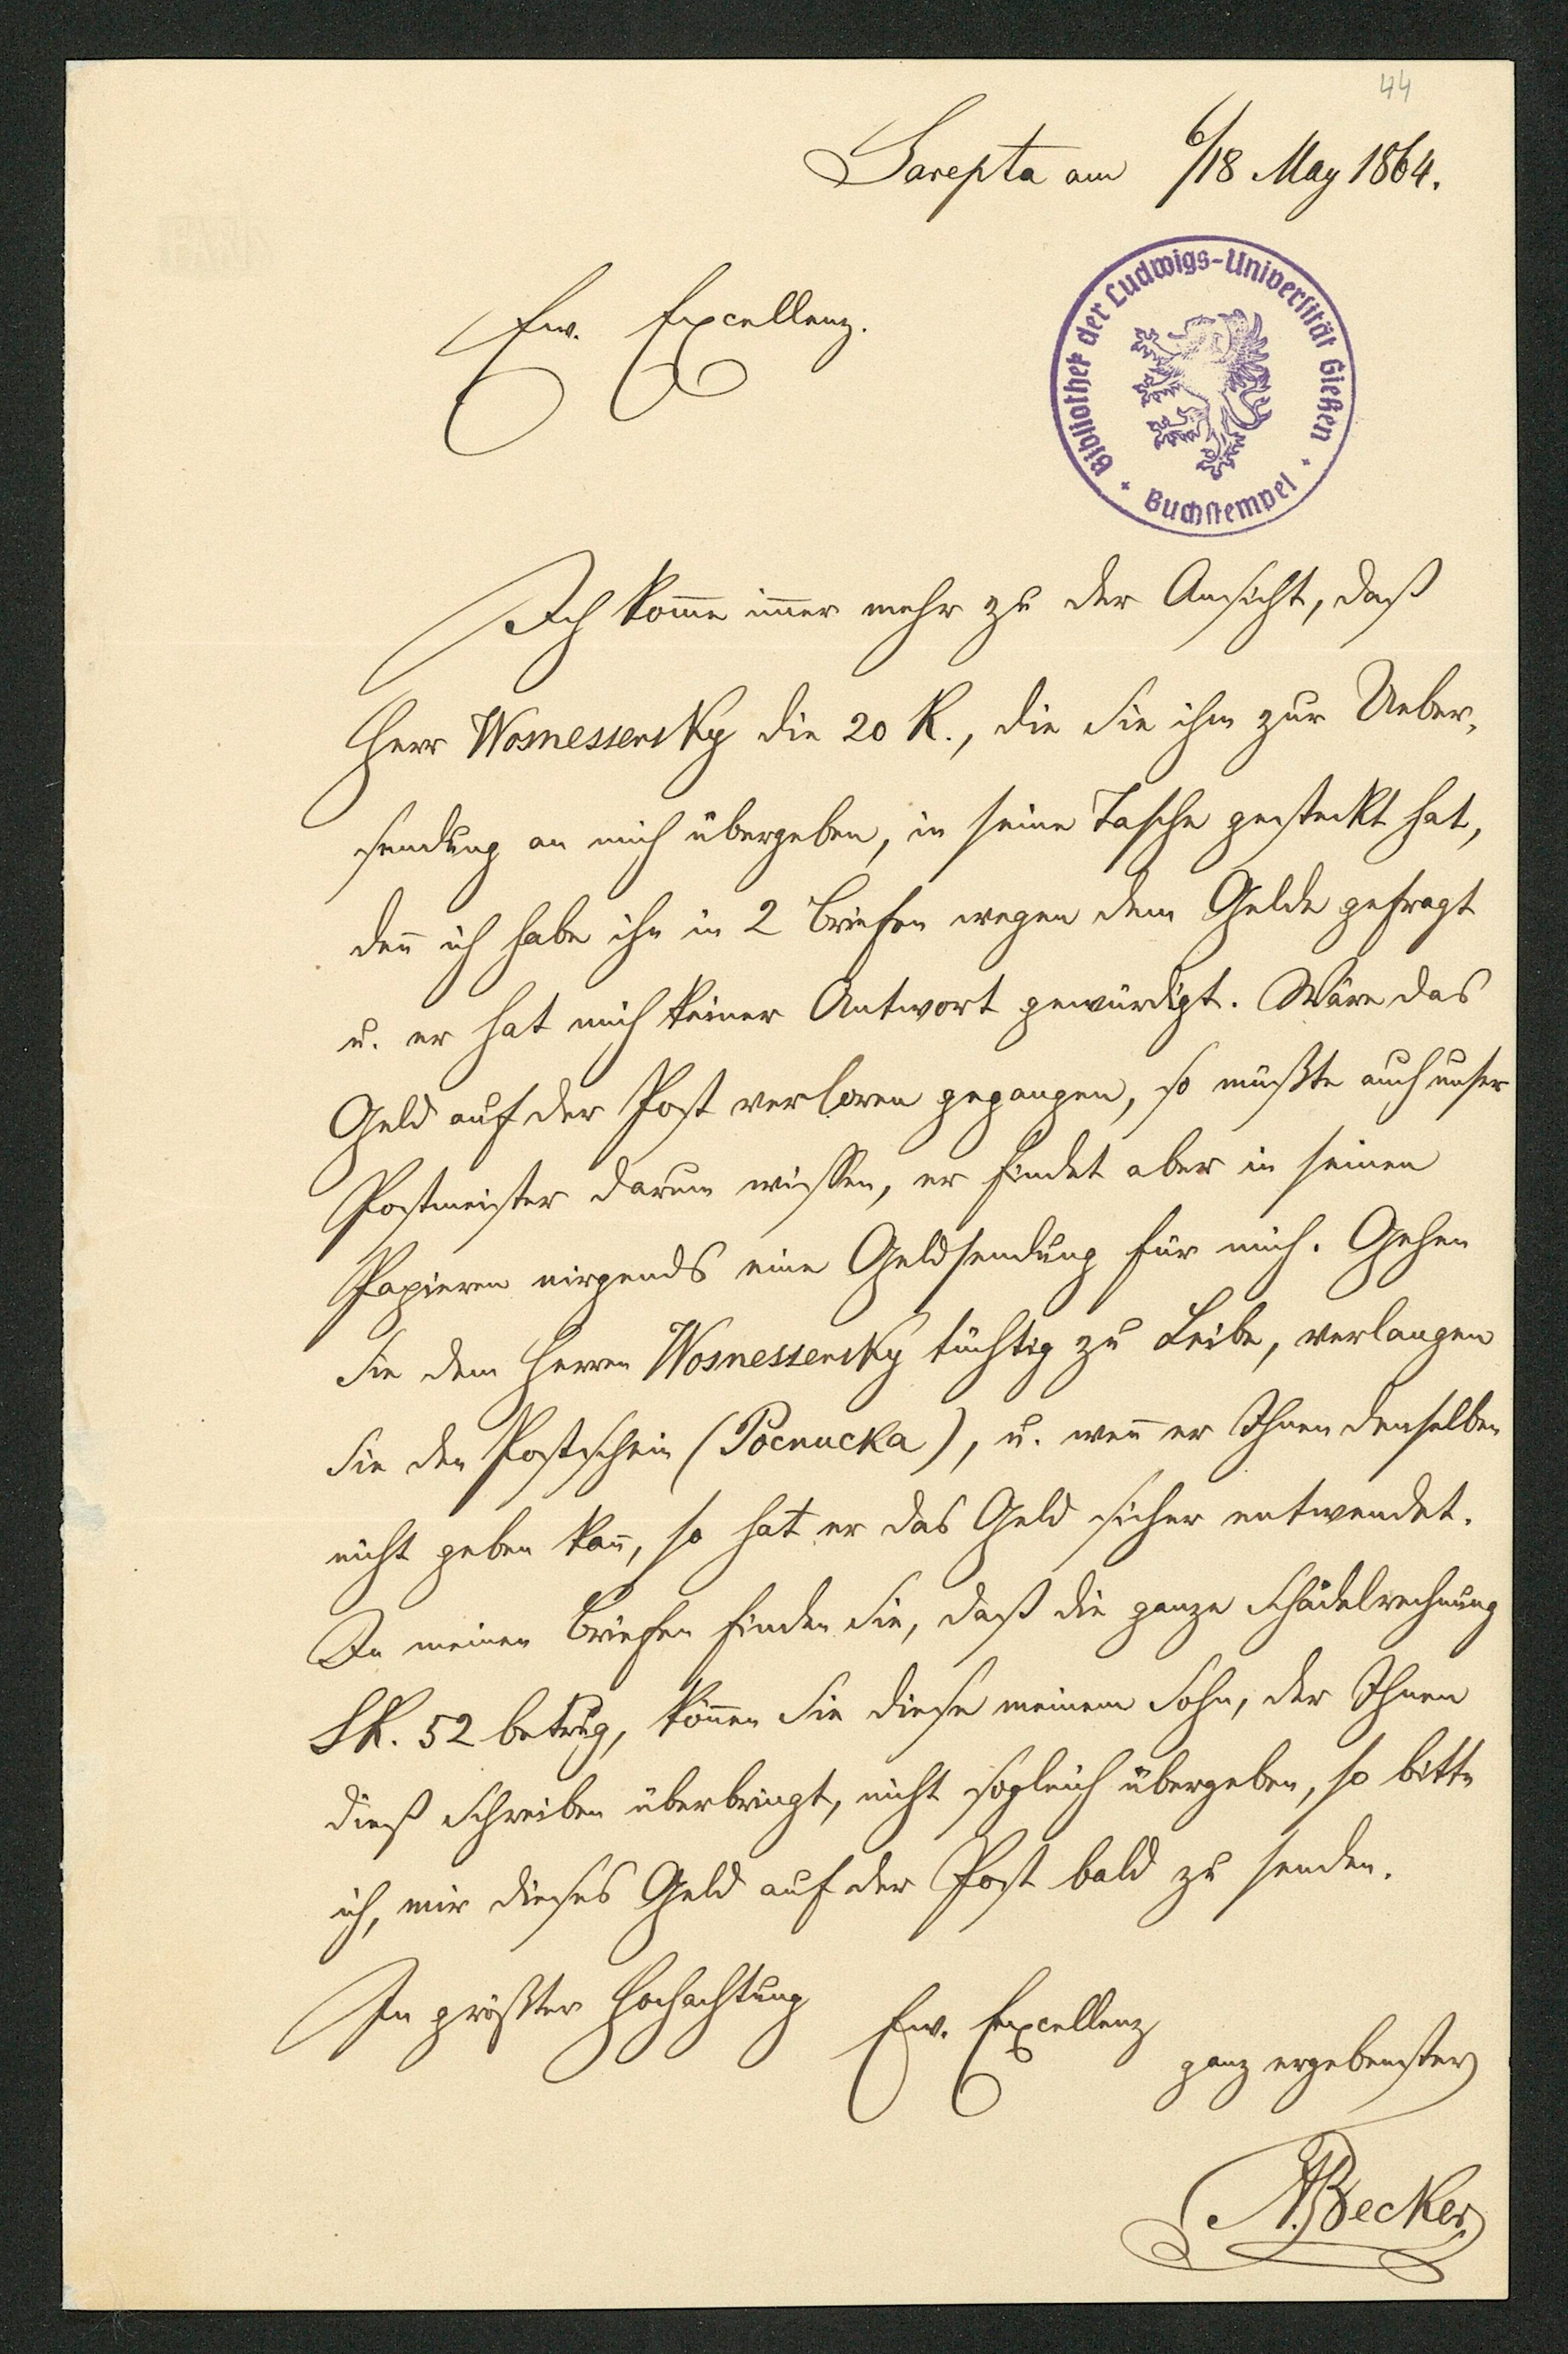 44
Sarepta am 6/18 May 1864.
Ew. Excellenz.
Bibliothek der Ludwigs-Universität Gießen
Buchstempel
Ich kom̄e im̄er mehr zu der Ansicht, daß
Herr Wosnessensky die 20 R., die Sie ihm zur Ueber-
sendung an mich übergeben, in seine Tasche gesteckt hat,
den̄ ich habe ihn in 2 Briefen wegen dem Gelde gefragt
u. er hat mich keiner Antwort gewürdigt. Wäre das
Geld auf der Post verloren gegangen, so müßte auch unser
Postmeister darum wissen, er findet aber in seinen
Papieren nirgends eine Geldsendung für mich. Gehen
Sie dem Herren Wosnessensky tüchtig zu Leibe, verlangen
Sie den Postschein (Росписка), u. wen̄ er Ihnen denselben
nicht geben kan̄, so hat er das Geld sicher entwendet.
In meinen Briefen finden Sie, daß die ganze Schädelrechnung
SR. 52 betrug, kön̄en Sie diese meinem Sohn, der Ihnen
dieß Schreiben überbringt, nicht sogleich übergeben, so bitte
ich, mir dieses Geld auf der Post bald zu senden.
In größter Hochachtung
Ew. Excellenz
ganz ergebenster
A. Becker